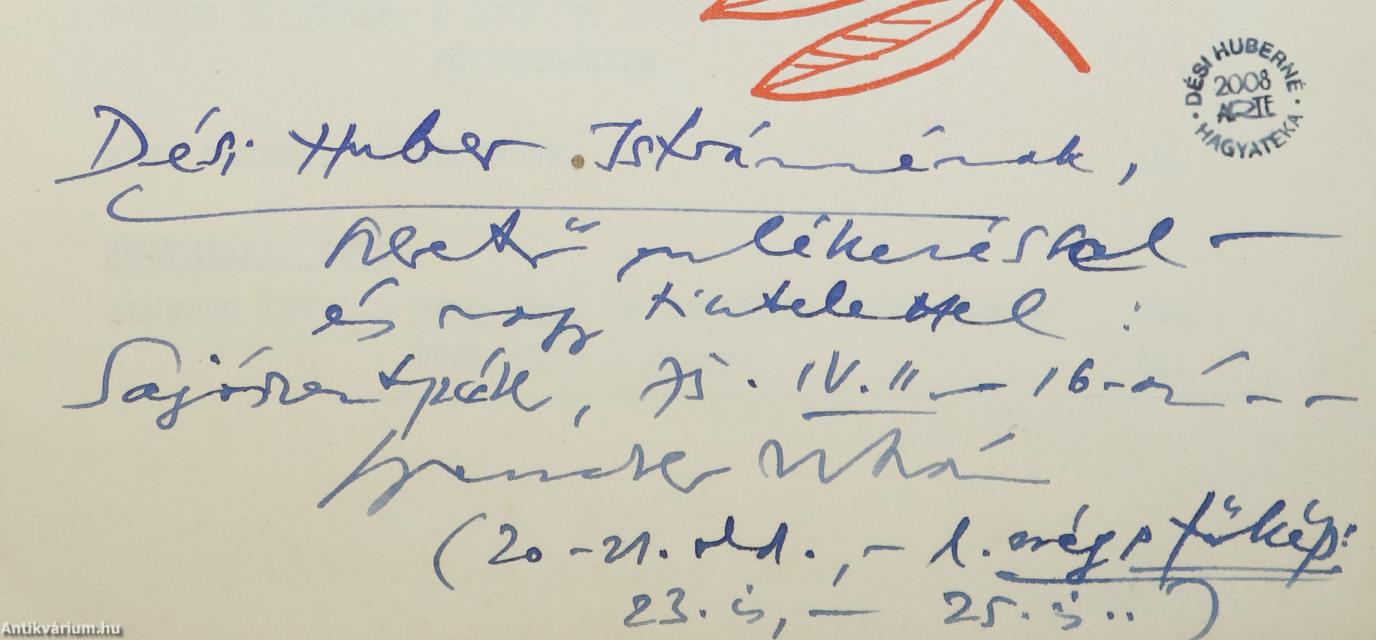 DÉSI HUBERNÉ
2008
ARTE
HAGYATÉKA
Dési Huber Istvánnénak,
szerető emlékezéssel –
és nagy tisztelettel :
Sajószentpéter, 75. IV. 11 – 16-án – –
(20–21. old., – l. még a tükép:
23. is, – 25. is..)
Antikvárium.hu